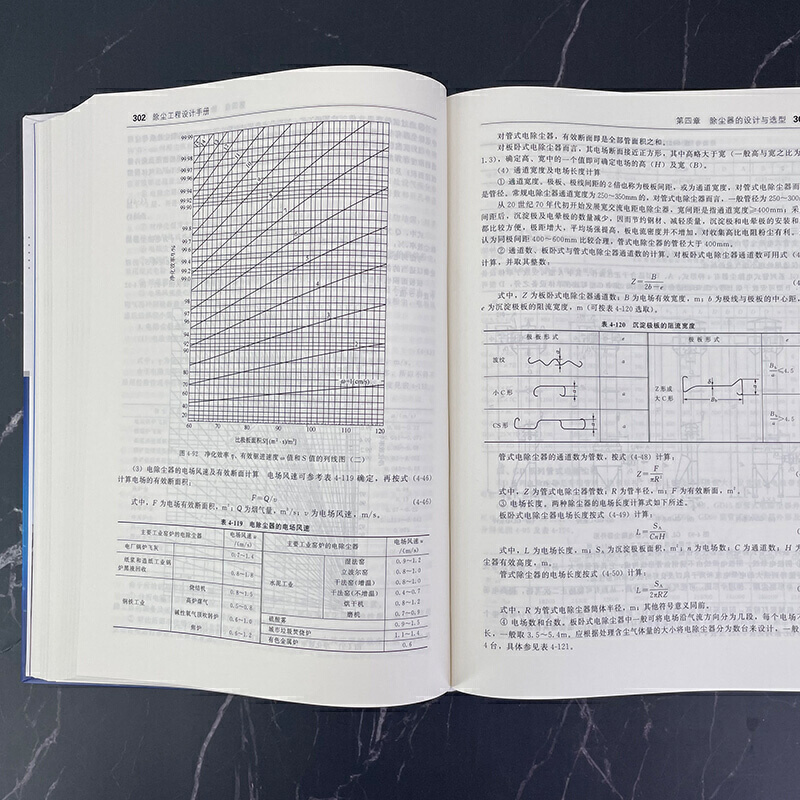 302 除尘工程设计手册
99.99
99.98
99.96
99.94
99.92
99.9
99.8
99.6
99.4
99.2
99
98
96
94
92
90
80
70
60
50
20
净化效率η/%
4
3
2
ω=1(cm/s)
50 60 70 80 90 100 110 120
比极板面积S/[(m²·s)/m³]
图 4-92 净化效率 η、有效驱进速度 ω 值和 S 值的列线图（二）
（3）电除尘器的电场风速及有效断面计算 电场风速可参考表 4-119 确定，再按式（4-46）
计算电场的有效断面积：
F=Q/υ (4-46)
式中，F 为电场有效断面积，m²；Q 为烟气量，m³/s；υ 为电场风速，m/s。
表 4-119 电除尘器的电场风速
主要工业窑炉的电除尘器 电场风速 υ/(m/s) 主要工业窑炉的电除尘器 电场风速 υ/(m/s)
电厂锅炉飞灰 0.7~1.4
纸浆和造纸工业锅炉黑液回收 0.8~1.8
钢铁工业
烧结机 0.8~1.5
高炉煤气 0.8~0.8
碱性氧气顶吹转炉 0.8~1.0
焦炉 0.6~1.2
水泥工业
湿法窑 0.9~1.2
立波尔窑 0.8~1.0
干法窑(增温) 0.8~1.0
干法窑(不增温) 0.4~0.7
烘干机 0.8~1.2
磨机 0.7~0.9
硫酸雾 0.9~1.5
城市垃圾焚烧炉 1.1~1.4
有色金属炉 0.6
第四章 除尘器的设计与选型
对管式电除尘器，有效断面即是全部管面积之和。
对板卧式电除尘器而言，其电场断面接近正方形，其中高略大于宽（一般高与宽之比为
1.3），确定高、宽中的一个值即可确定电场的高（H）及宽（B）。
（4）通道宽度及电场长度计算
① 通道宽度。极板、极线间距的 2 倍也称为极板间距，或为通道宽度，对管式电除尘器而
是管径。常规电除尘器通道宽度为 250~350mm 的，对管式电除尘器而言，一般管径为 250~300
从 20 世纪 70 年代初开始发展宽交流电距电除尘器，宽间距是指通道宽度≥400mm；采
间距后，沉淀极及电晕极的数量减少，因而节约钢材、减轻质量，沉淀极和电晕极的安装和
都比较方便，极距增大，平均场强提高，板电流密度并不增加，对收集高比电阻粉尘有利。
认为同极间距 400~600mm 比较合理，管式电除尘器的管径大于 400mm。
② 通道数。板卧式与管式电除尘器通道数的计算。对板卧式电除尘器通道数可用式（4
计算，并取其整数。
Z=B/(2b-e)
式中，Z 为板卧式电除尘器通道数；B 为电场有效宽度，m；b 为极线与极板的中心距，
e 为沉淀极板的阻流宽度，m（可按表 4-120 选取）。
表 4-120 沉淀极板的阻流宽度
极板形式 e 极板形式 e
波纹 a
小 C 形 a
CS 形 a
Z 形或大 C 形
≤4.5
>4.5
管式电除尘器的通道数为管数，按式（4-48）计算：
Z=F/(πR²)
式中，Z 为管式电除尘器管数；R 为管半径，m；F 为有效断面，m²。
③ 电场长度。两种除尘器的电场长度计算式如下所述。
板卧式电除尘器电场长度按式（4-49）计算：
L=S_A/(CnH)
式中，L 为电场长度，m；S_A 为沉淀极板面积，m²；n 为电场数；C 为通道数；H 为
尘器有效高度，m。
管式除尘器的电场长度按式（4-50）计算：
L=S_A/(2πRZ)
式中，R 为管式电除尘器筒体半径，m；其他符号意义同前。
④ 电场数和台数。板卧式电除尘器中一般可将电场沿气流方向分为几段，每个电场不
长，一般取 3.5~5.4m，应根据处理含尘气体量的大小将电除尘器分为数台来设计，一般
4 台，具体参见表 4-121。